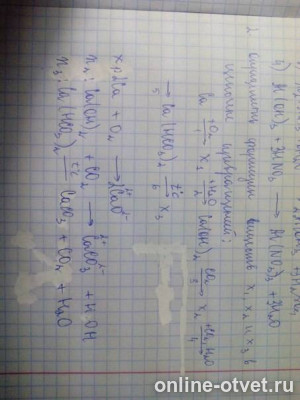 б) Al(OH)₃ + 3HNO₃ ⟶ Al(NO₃)₃ + 3H₂O
2 формулы веществ x₁, x₂ и x₃ в
цепочке превращений:
Ca →(+O₂, 1) X₁ →(+H₂O, 2) Ca(OH)₂ →(CO₂, 3) X₂ →(+CO₂, H₂O, 4)
→(5) Ca(HCO₃)₂ ⇄(t°C, 6) X₃
x₁: 2Ca + O₂ ⟶ 2CaO
x₂: Ca(OH)₂ + CO₂ ⟶ CaCO₃ + HOH
x₃: Ca(HCO₃)₂ ⇄(t°C) CaCO₃ + CO₂ + H₂O
online-otvet.ru